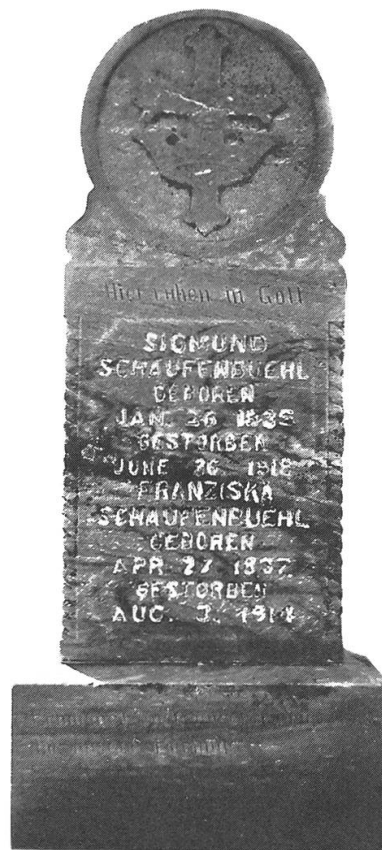 Hier ruhen in Gott
SIGMUND
SCHAUFENBUEHL
GEBOREN
JAN. 26 1835
GESTORBEN
JUNE 26 1918
FRANZISKA
SCHAUFENBUEHL
GEBOREN
APR. 27 1837
GESTORBEN
AUG. 3, 1914